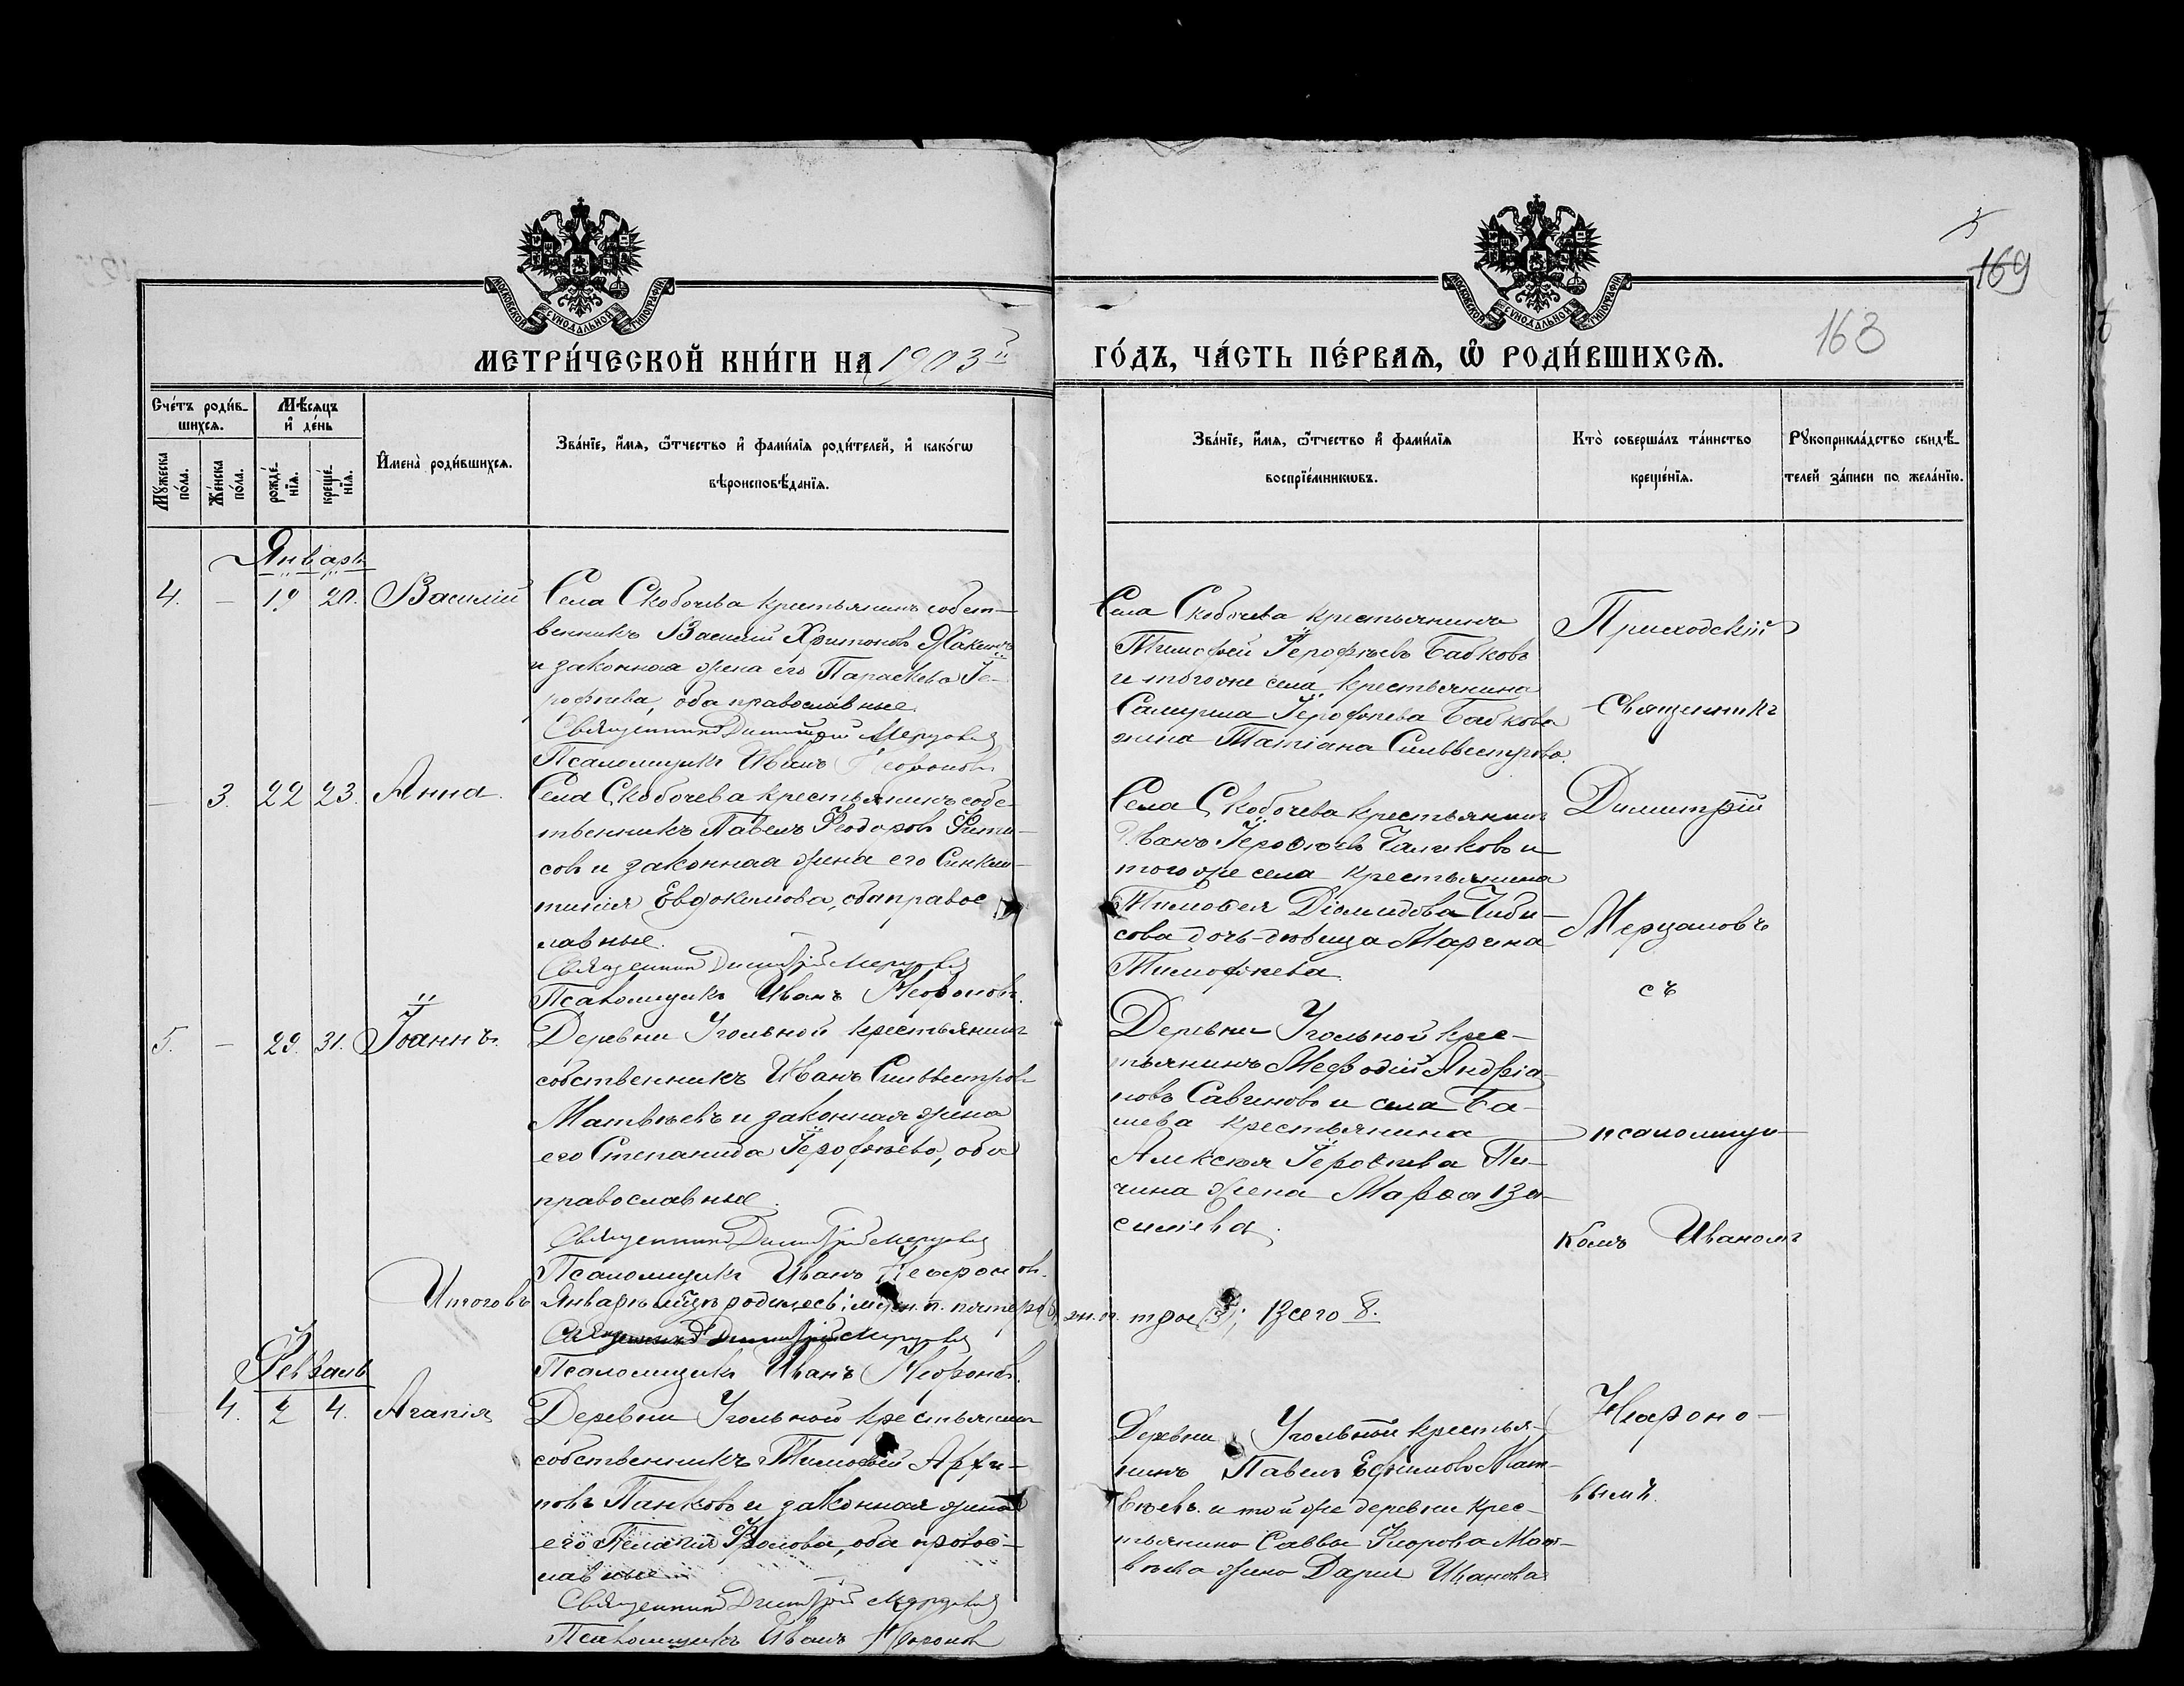 169
163
МОСКОВСКОЙ СѴНОДАЛЬНОЙ ТИПОГРАФІИ
МОСКОВСКОЙ СѴНОДАЛЬНОЙ ТИПОГРАФІИ
МЕТРИ́ЧЕСКОЙ КНИ́ГИ НА 1903й
ГО́ДЪ, ЧА́СТЬ ПЕ́РВАЯ, Ѡ҆ РОДИ́ВШИХСЯ.
Сче́тъ роди́в-
шихся.
Мѣ́сяцъ
и҆ де́нь
Му́жеска
по́ла.
Же́нска
по́ла.
рожде́-
нїя.
креще́-
нїя.
И҆мена̀ роди́вшихся.
Зва́нїе, и҆́мя, ѻ҆́тчество и҆ фами́лїя роди́телей, и҆ како́гѡ
вѣроисповѣ́данїя.
Зва́нїе, и҆́мя, ѻ҆́тчество и҆ фами́лїя
воспрїе́мникѡвъ.
Кто̀ соверша́лъ та́инство
креще́нїя.
Рꙋкоприкла́дство свидѣ́-
телей за́писи по жела́нїю.
Январь
4. — 19 20. Василій
Села Скобочева крестьянинъ собст-
венникъ Василій Харитоновъ
и законная жена его Параскева Іе-
рофѣева, оба православные.
Священникъ Димитрій Мерцаловъ
Псаломщикъ Иванъ Неароновъ
Села Скобочева крестьянинъ
Тимофей Іерофѣевъ Бабковъ
и того же села крестьянина
Самуила Іерофѣева Бабкова
жена Татіана Сильвестрова.
— 3. 22 23. Анна.
Села Скобочева крестьянинъ собс-
твенникъ Павелъ Ѳеодоровъ
совъ и законная жена его Синкли-
тикія Евдокимова, оба правос-
лавные.
Священникъ Димитрій Мерцаловъ
Псаломщикъ Иванъ Неароновъ.
Села Скобочева крестьянинъ
Иванъ Іероѳѣевъ Чаликовъ и
того же села крестьянина
Тимоѳея Діомидова Чиби-
сова дочь-дѣвица Марина
Тимоѳѣева.
5. — 29. 31. Іоаннъ.
Деревни Угольной крестьянинъ
собственникъ Иванъ Сильвестровъ
Матвѣевъ и законная жена
его Степанида Іерофѣева, оба
православные.
Священникъ Димитрій Мерцаловъ
Псаломщикъ Иванъ Неароновъ.
Деревни Угольной крес-
тьянинъ Меѳодій Андріа-
новъ Савиновъ и села Ба-
шева крестьянина
Алексѣя Іероѳѣева Пи-
чина жена Марѳа Ва-
сильева.
Итого въ Январѣ мѣсяцѣ родилось: муж. п. пятеро (5), жн. п. трое (3); Всего 8.
Священникъ Димитрій Мерцаловъ
Псаломщикъ Иванъ Неароновъ.
Февраль
— 4. 2 4. Агапія
Деревни Угольной крестьянинъ
собственникъ Тимоѳей Архи-
повъ Панковъ и законная жена
его Пелагія Фролова, оба правос-
лавные.
Священникъ Димитрій Мерцаловъ
Псаломщикъ Иванъ Неароновъ
Деревни Угольной крестья-
нинъ Павелъ Ефимовъ Мат-
вѣевъ и той же деревни крес-
тьянина Саввы Флорова Мат-
вѣева жена Дарія Иванова
Приходскій
Священникъ
Димитрій
Мерцаловъ
съ
псаломщи-
комъ Иваномъ
Неароно-
вымъ.